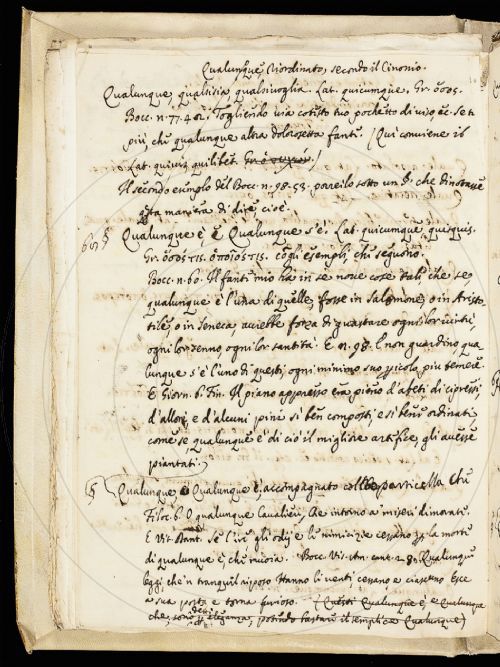 Qualunque, Riordinato, secondo il Cinonio.
Qualunque, qualsisia, qualsivoglia. Lat. quicumque. Gr. ὅσος.
Bocc. n. 77. 402. Togliendo via cotesto tuo pochetto di viso, &c. se ti
più, che qualunque altra dolorosetta fante. / Qui conviene il
Lat. quivis, quilibet.
Il secondo esempio del Bocc. n. 98. 53. porreilo sotto un §. che dinotasse
qsta maniera di dire, cioè.
§ Qualunque è, e Qualunque s'è. Lat. quicumque, quisquis.
Gr. ὅστις. ὁποῖος τις. cogli esempli, che seguono.
Bocc. n. 60. Il fante mio ha in se nove cose tali che se
qualunque è l'una di quelle, fosse in Salomone, o in Aristo
tile, o in Seneca, avrebbe forza di guastare ogni lor virtù,
ogni lor senno, ogni lor santità. E n. 98. E non guardino, qua
lunque s'è l'uno di questi, ogni minimo suo picolo, più temere
E Giorn. 6. Fin. Il piano appresso era pieno d'abeti di cipressi,
d'allori, e d'alcuni pini sì ben composti, e sì bene ordinati
come se qualunque è di ciò il migliore artefice, gli avesse
piantati.
§ Qualunque Qualunque è, accompagnato colla particella Che
Filoc. 6. O qualunque Cavalieri, che intorno a' miseri dimorate.
E Vit. Dant. Se l'ire gli odij e le nimicizie cessano p la morte
di qualunque è, che muoia. Bocc. Vis. Am. cant. 28. Qualunque
leggi, che 'n tranquil riposo stanno li venti, cessano e ciascuno esce
a sua posta e torna furioso. (Questi Qualunque è, e Qualunque
che, sono eleganza, potendo bastare il semplice Qualunque)